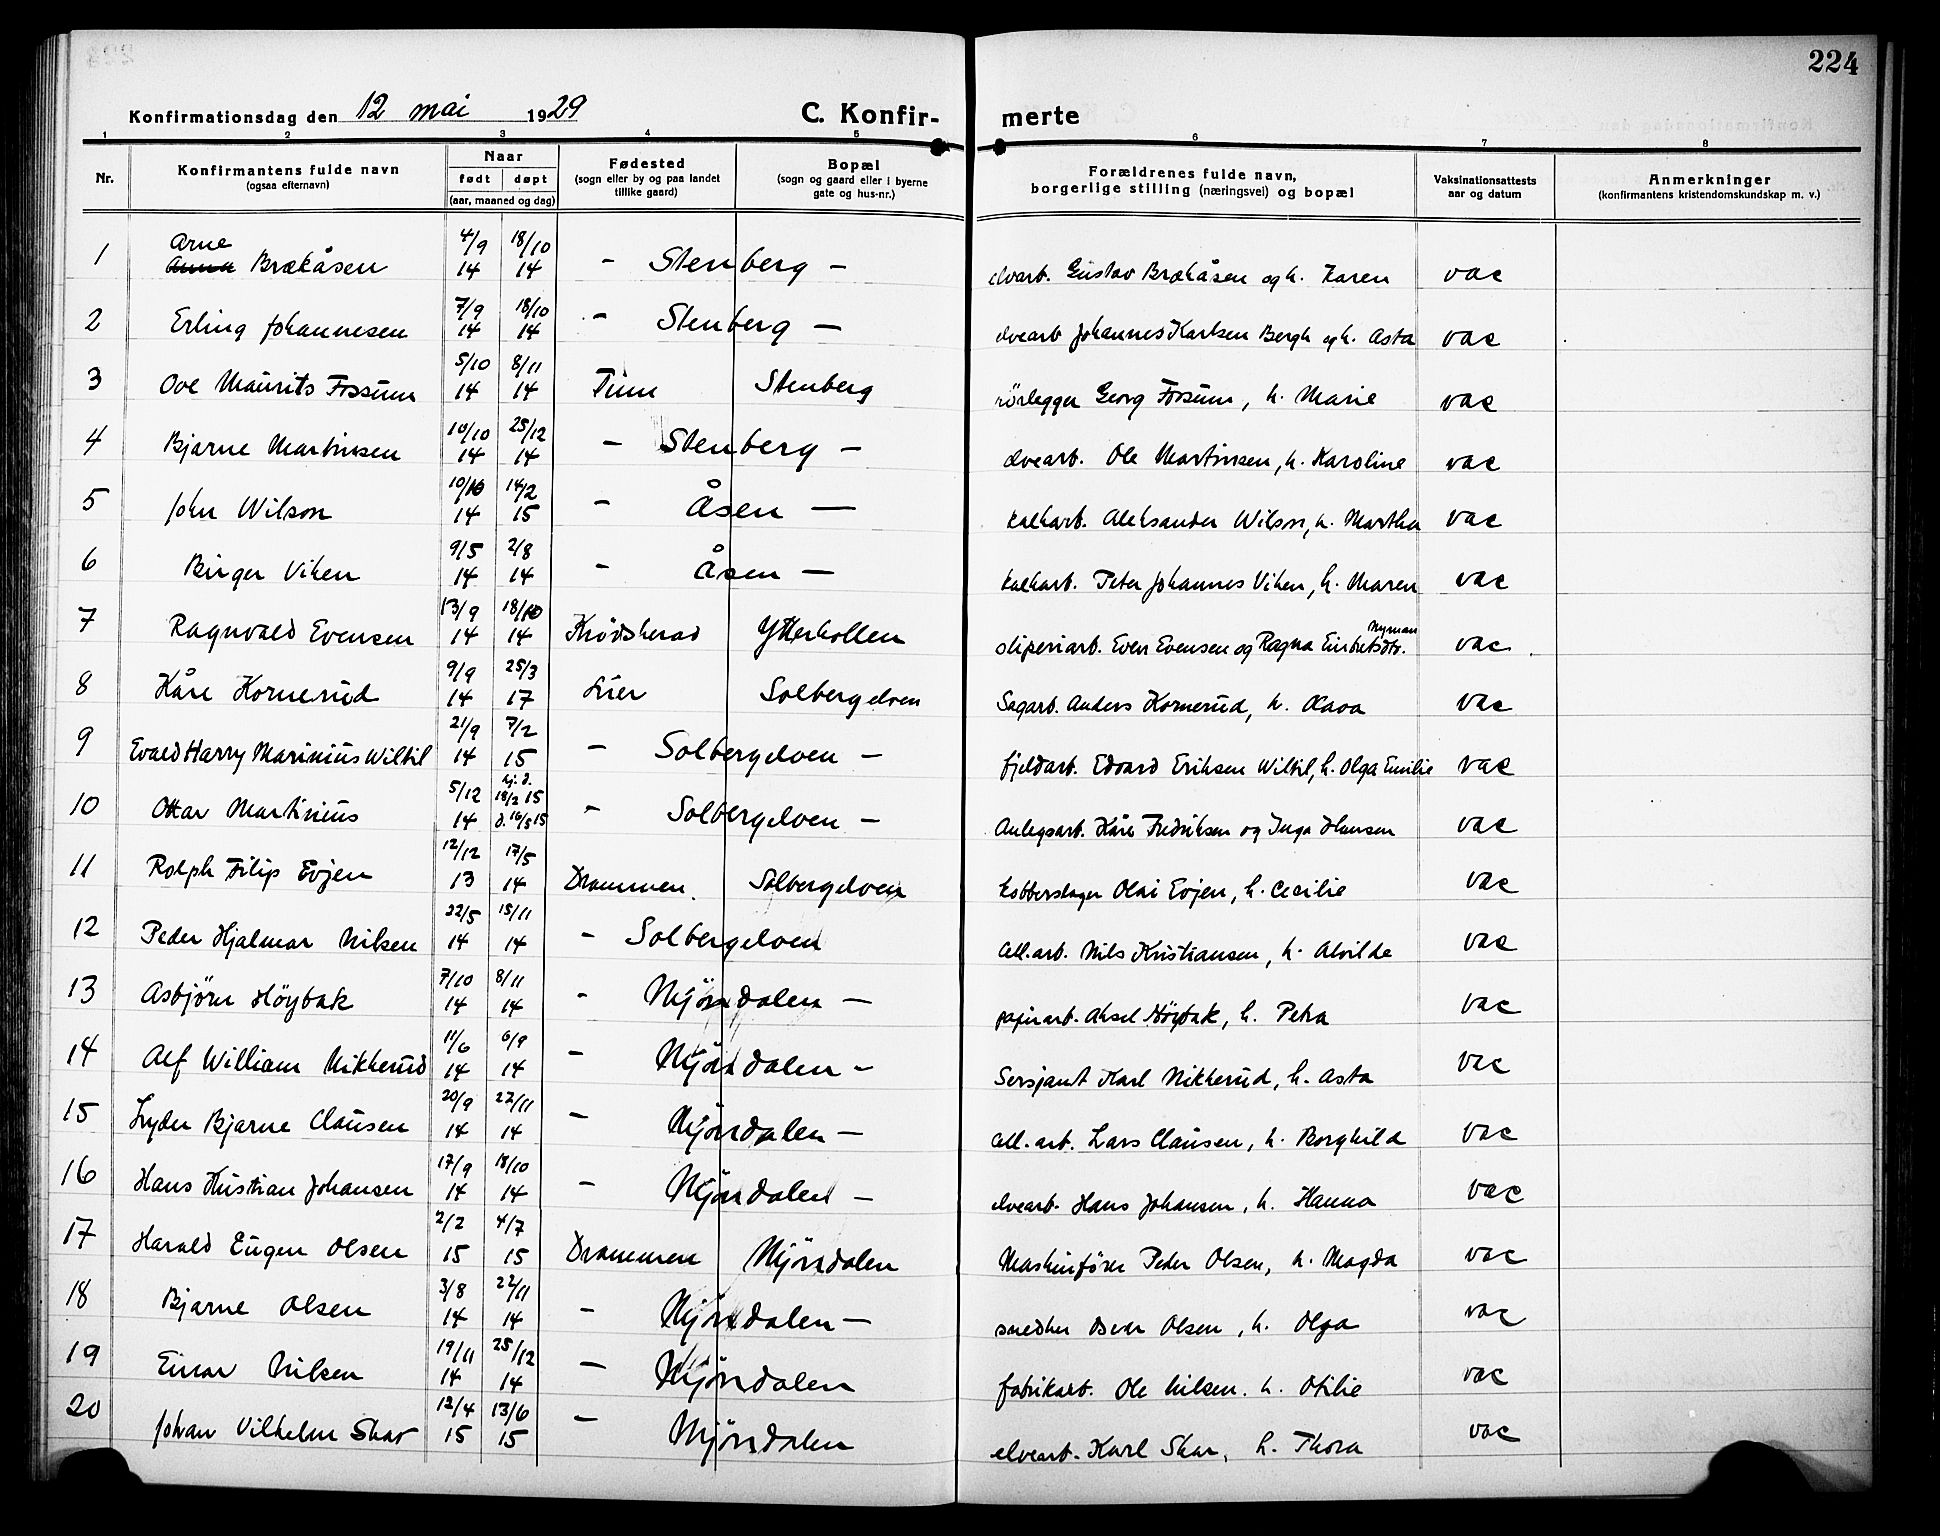 224
Konfirmationsdag den 12 mai 1929
C. Konfir- merte
1 2 3 4 5 6 7 8
Nr.
Konfirmantens fulde navn
(ogsaa efternavn)
Naar
født døpt
(aar, maaned og dag)
Fødested
(sogn eller by og paa landet
tillike gaard)
Bopæl
(sogn og gaard eller i byerne
gate og hus-nr.)
Forældrenes fulde navn,
borgerlige stilling (næringsvei) og bopæl
Vaksinationsattests
aar og datum
Anmerkninger
(konfirmantens kristendomskundskap m. v.)
Arne 4/9 18/10
1 Anna Brækåsen 14 14 - Stenberg - elvarb. Gustav Brækåsen og h. Karen vac
7/9 18/10
2 Erling Johannesen 14 14 - Stenberg - elvearb Johannes Karlsen Bergh og h. Asta vac
5/10 8/11
3 Ove Maurits Fossum 14 14 Stenberg rörlegger Georg Fossum, h. Marie vac
10/10 25/12
4 Bjarne Martinsen 14 14 - Stenberg - elvearb. Ole Martinsen, h. Karoline vac
10/10 14/2
5 John Wilson 14 15 - Åsen - kalkarb. Aleksander Wilson, h. Martha vac
9/5 2/8
6 Birger Viken 14 14 - Åsen - kalkarb. Peter Johannes Viken, h. Maren vac
13/9 18/10 Nyman
7 Ragnvald Evensen 14 14 Krödsherad Ytterkollen sliperiarb. Even Evensen og Ragna Einbetsdtr. vac
9/9 25/3
8 Kåre Kornerud 14 17 Lier Solbergelven Sagarb. Anders Kornerud, h. vac
21/9 7/2
9 Evald Harry Marinius Wiltil 14 15 - Solbergelven - fjeldarb. Edvard Eriksen Wiltil, h. Olga Emilie vac
5/12 hj. d. 18/2 15
10 Ottar Martinius 14 d. 16/5 15 - Solbergelven - Anlegsarb. Kåre Fredriksen og Inga Hansen vac
12/12 17/5
11 Rolph Filip Evjen 13 14 Drammen. Solbergelven kobberslager Olai Evjen, h. Cecilie vac
22/5 15/11
12 Peder Hjalmar Nilsen 14 14 - Solbergelven cell.arb. Nils Kristiansen, h. Alvilde vac
7/10 8/11
13 Asbjörn Höybak 14 14 - Mjöndalen - papirarb. Aksel Höybak, h. Petra vac
11/6 6/9
14 Alf William Nikkerud 14 14 - Mjöndalen - Sersjant Karl Nikkerud, h. Asta vac
20/9 22/11
15 Lyder Bjarne Clausen 14 14 - Mjöndalen - cell.arb. Lars Clausen, h. Borghild vac
17/9 18/10
16 Hans Kristian Johansen 14 14 - Mjöndalen - elvearb. Hans Johansen, h. Hanna vac
2/2 4/7
17 Harald Eugen Olsen 15 15 Drammen Mjöndalen Maskinförer Peder Olsen, h. Magda vac
3/8 22/11
18 Bjarne Olsen 14 14 - Mjöndalen - snedker Olsen, h. Olga vac
19/11 25/12
19 Einar Nilsen 14 14 - Mjöndalen fabrikarb. Ole Nilsen. h. Otilie vac
12/4 13/6
20 Johan Vilhelm Skar 15 15 - Mjöndalen elvearb. Karl Skar, h. Thora vac